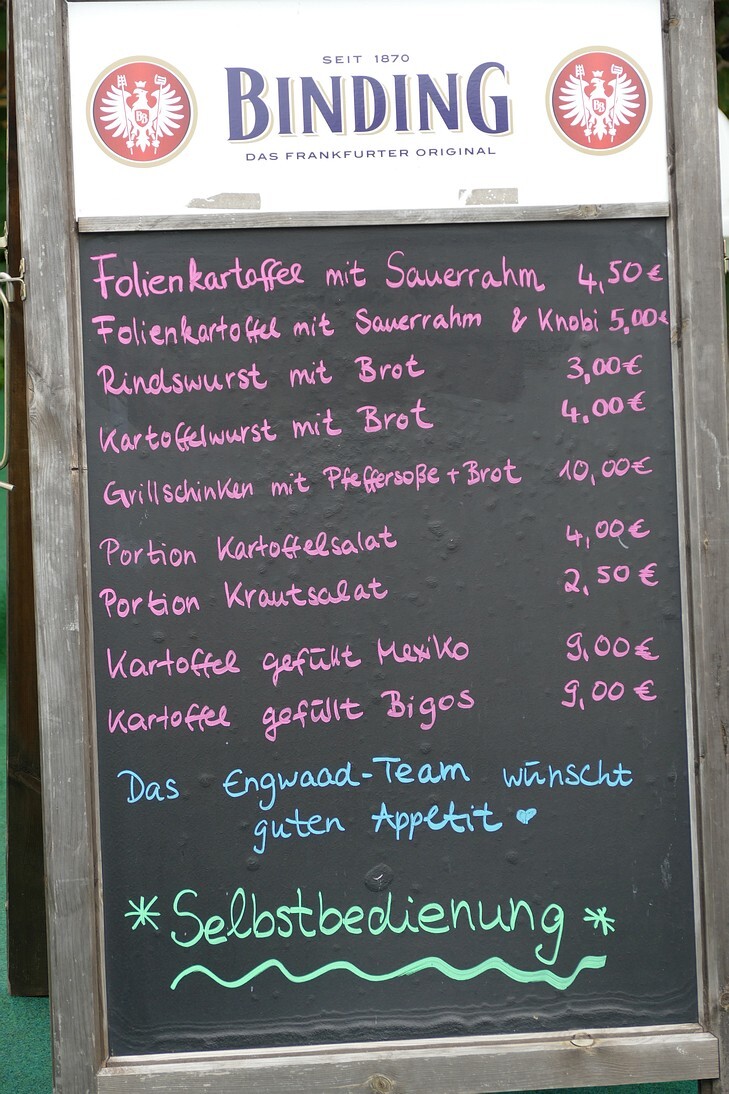 SEIT 1870
BINDING
DAS FRANKFURTER ORIGINAL
Folienkartoffel mit Sauerrahm 4,50€
Folienkartoffel mit Sauerrahm & Knobi 5,00€
Rindswurst mit Brot 3,00€
Kartoffelwurst mit Brot 4.00€
Grillschinken mit Pfeffersoße + Brot 10,00€
Portion Kartoffelsalat 4,00€
Portion Krautsalat 2,50€
Kartoffel gefüllt Mexiko 9,00€
Kartoffel gefüllt Bigos 9,00€
Das Engwaad-Team wünscht
guten Appetit ♥
* Selbstbedienung *